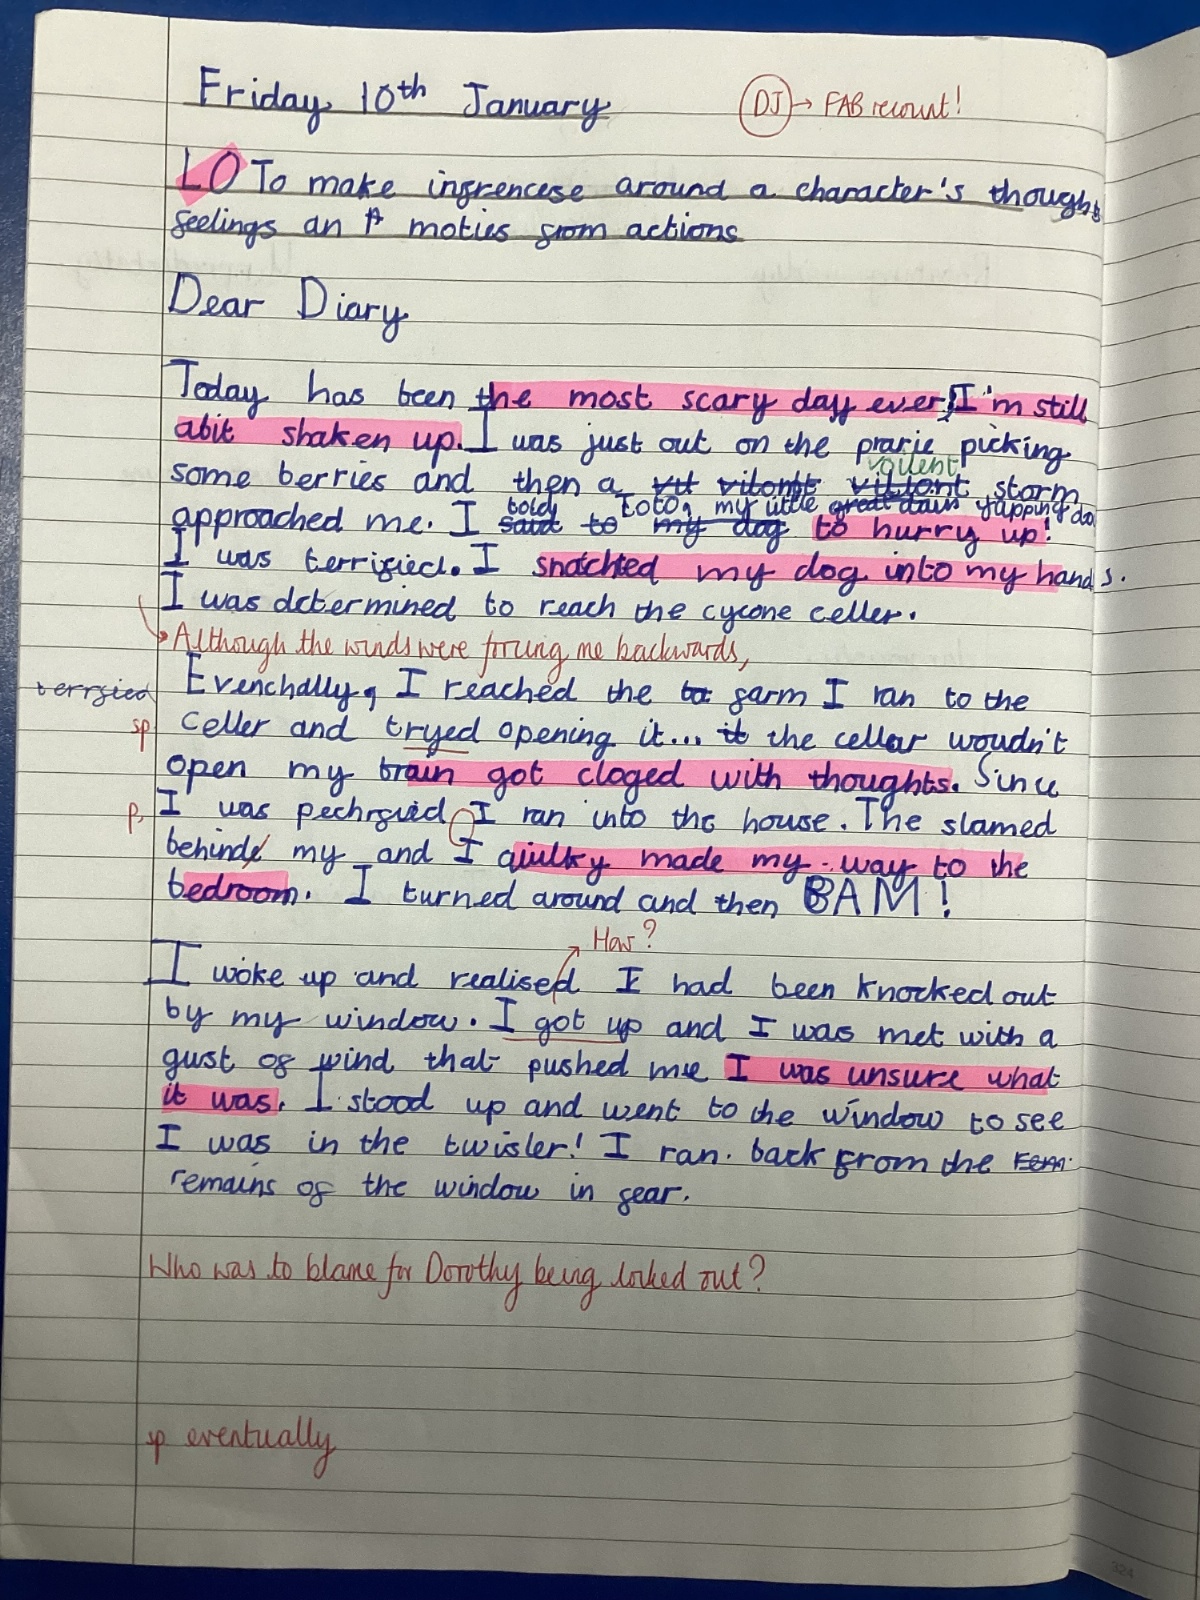 Friday 10th January
DJ → FAB recount!
LO To make ingrencese around a character's thoughs
feelings an A moties from actions
Dear Diary
Today has been the most scary day ever, I'm still
abit shaken up. I was just out on the prarie picking
voilent
some berries and then a storm
told Toto, my little yapping do
approached me. I to hurry up!
I was terrified. I snatched my dog into my hands.
I was determined to reach the cycone celler.
Although the winds were forcing me backwards,
terrfied
Evenchally, I reached the farm I ran to the
sp
celler and tryed opening it... the cellar woudn't
open my brain got cloged with thoughts. Since
p,
I was pechrfied I ran into the house. The slamed
behinde my and I qiulky made my way to the
bedroom. I turned around and then BAM!
How?
I woke up and realised I had been knocked out
by my window. I got up and I was met with a
gust of wind that pushed me I was unsure what
it was. I stood up and went to the window to see
I was in the twister! I ran back from the
remains of the window in fear.
Who was to blame for Dorothy being locked out?
sp eventually
324